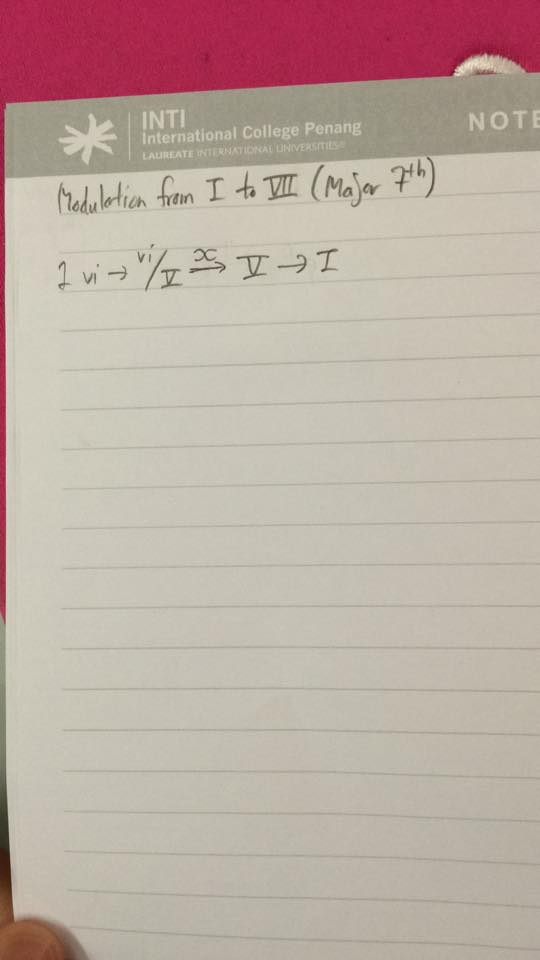 INTI
International College Penang
LAUREATE INTERNATIONAL UNIVERSITIES®
NOTE
Modulation from I to VII (Major 7th)
1 vi → vi/V x→ V → I